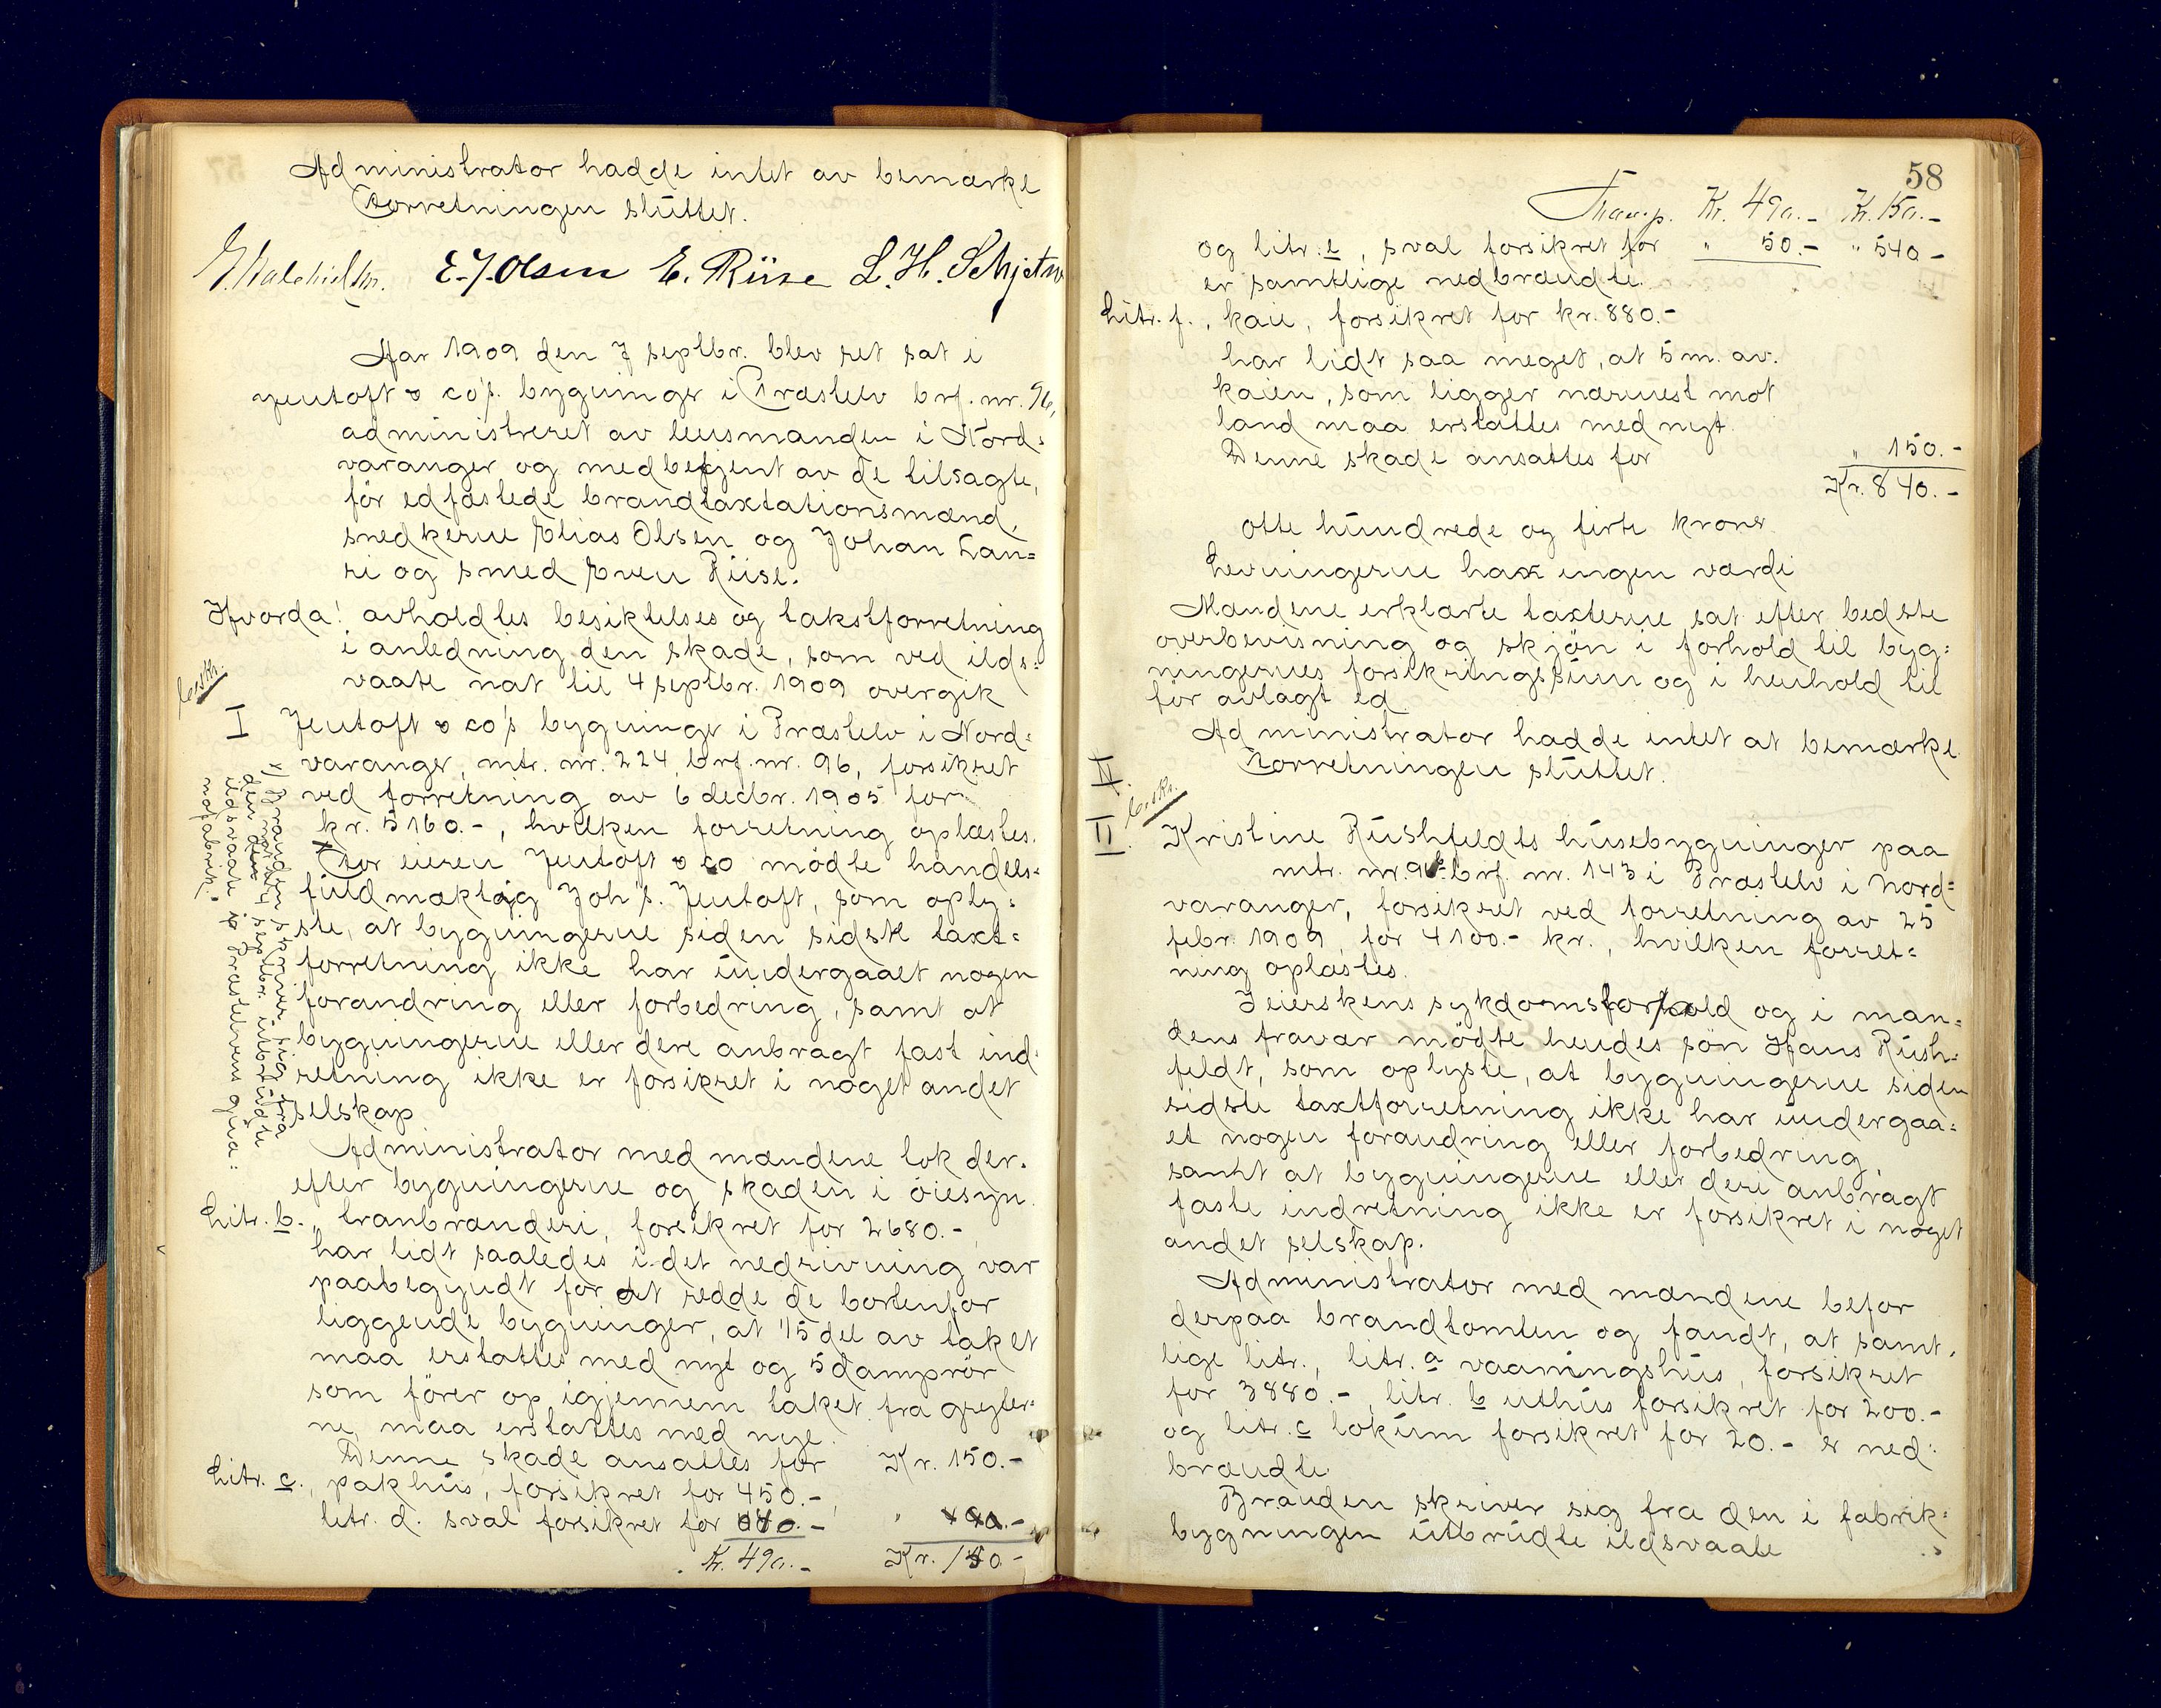 Administrator hadde intet av bemærke
Forretningen sluttet.
E.J. Olsen E. Riise L. H. Schjetne
Aar 1909 den 7 septbr. blev ret sat i
Jentoft & co's. bygninger i Præstelv brf. nr. 96,
administreret av lensmanden i Nord-
varanger og medbetjent av de tilsagte,
før edfæstede brandtaxtationsmænd,
snedkerne Elias Olsen og Johan Lan-
ri og smed Even Riise.
Hvorda! avholdtes besiktelses og takstforretning
i anledning den skade, som ved ilds-
vaate nat til 4 septbr. 1909 overgik
b.skr.
I Jentoft & co's bygninger i Præstelv i Nord-
varanger, mtr. nr. 224, brf. nr. 96, forsikret
ved forretning av 6 decbr. 1905 for
kr. 5160.-, hvilken forretning oplæstes.
x For eieren Jentoft & co mødte handels-
fuldmæktig Joh's. Jentoft, som oply-
ste, at bygningerne siden sidste taxt-
forretning ikke har undergaaet nogen
forandring eller forbedring, samt at
bygningerne eller dere anbragt fast ind-
retning ikke er forsikret i noget andet
selskap
x) Branden skriver sig fra
den nat 4 septbr. utbrudte
ildsvaate i Præstelvens gua-
nofabrik.
Administrator med mændene tok der-
efter bygningerne og skaden i öiesyn.
Litr. b. tranbrænderi, forsikret for 2680.-
har lidt saaledes i det nedrivning var
paabegyndt for at redde de bortenfor
liggende bygninger, at 1/5 del av taket
maa erstattes med nyt og 5 damprör
som förer op igjennem taket fra gryter-
ne, maa erstattes med nye.
Denne skade ansattes for Kr. 150.-
Litr. c., pakhus, forsikret for 450.-,
litr. d. sval forsikret for 040.-
Kr. 490.- Kr. 150.-
58
Transp. Kr. 490.- Kr. 150.-
og litr. e, sval forsikret for " 50.- " 540-
er samtlige nedbrændte.
Litr. f., kaie, forsikret for kr. 880.-
har lidt saa meget, at 5 m. av.
kaien, som ligger nærmest mot
land maa erstattes med nyt.
Denne skade ansattes for " 150.-
Kr. 840.-
otte hundrede og firti kroner
Levningerne hax ingen værdi
Mændene erklærte taxterne sat efter bedste
overbevisning og skjön i forhold til byg-
ningernes forsikringssum og i henhold til
för avlagt ed.
Administrator hadde intet at bemærke
Forretningen sluttet.
b.skr.
II. Kristine Rushfeldts husebygninger paa
mtr. nr. brf. nr. 143 i Præstelv i Nord-
varanger, forsikret ved forretning av 25
febr. 1909, for 4100.- kr., hvilken forret-
ning oplæstes.
I eierskens sykdomsforhold og i man-
dens fravær mödte hendes sön Hans Rush-
feldt, som oplyste, at bygningerne siden
sidste taxtforretning ikke har undergaa-
et nogen forandring eller forbedring,
samt at bygningerne eller deri anbragt
faste indretning ikke er forsikret i noget
andet selskap.
Administrator med mændene befor
derpaa brandtomten og fandt, at samt-
lige litr., litr. a vaaningshus, forsikret
for 3880.-, litr. b uthus forsikret for 200.-
og litr. c lokum forsikret for 20.- er ned-
brændte
Branden skriver sig fra den i fabrik-
bygningen utbrudte ildsvaate